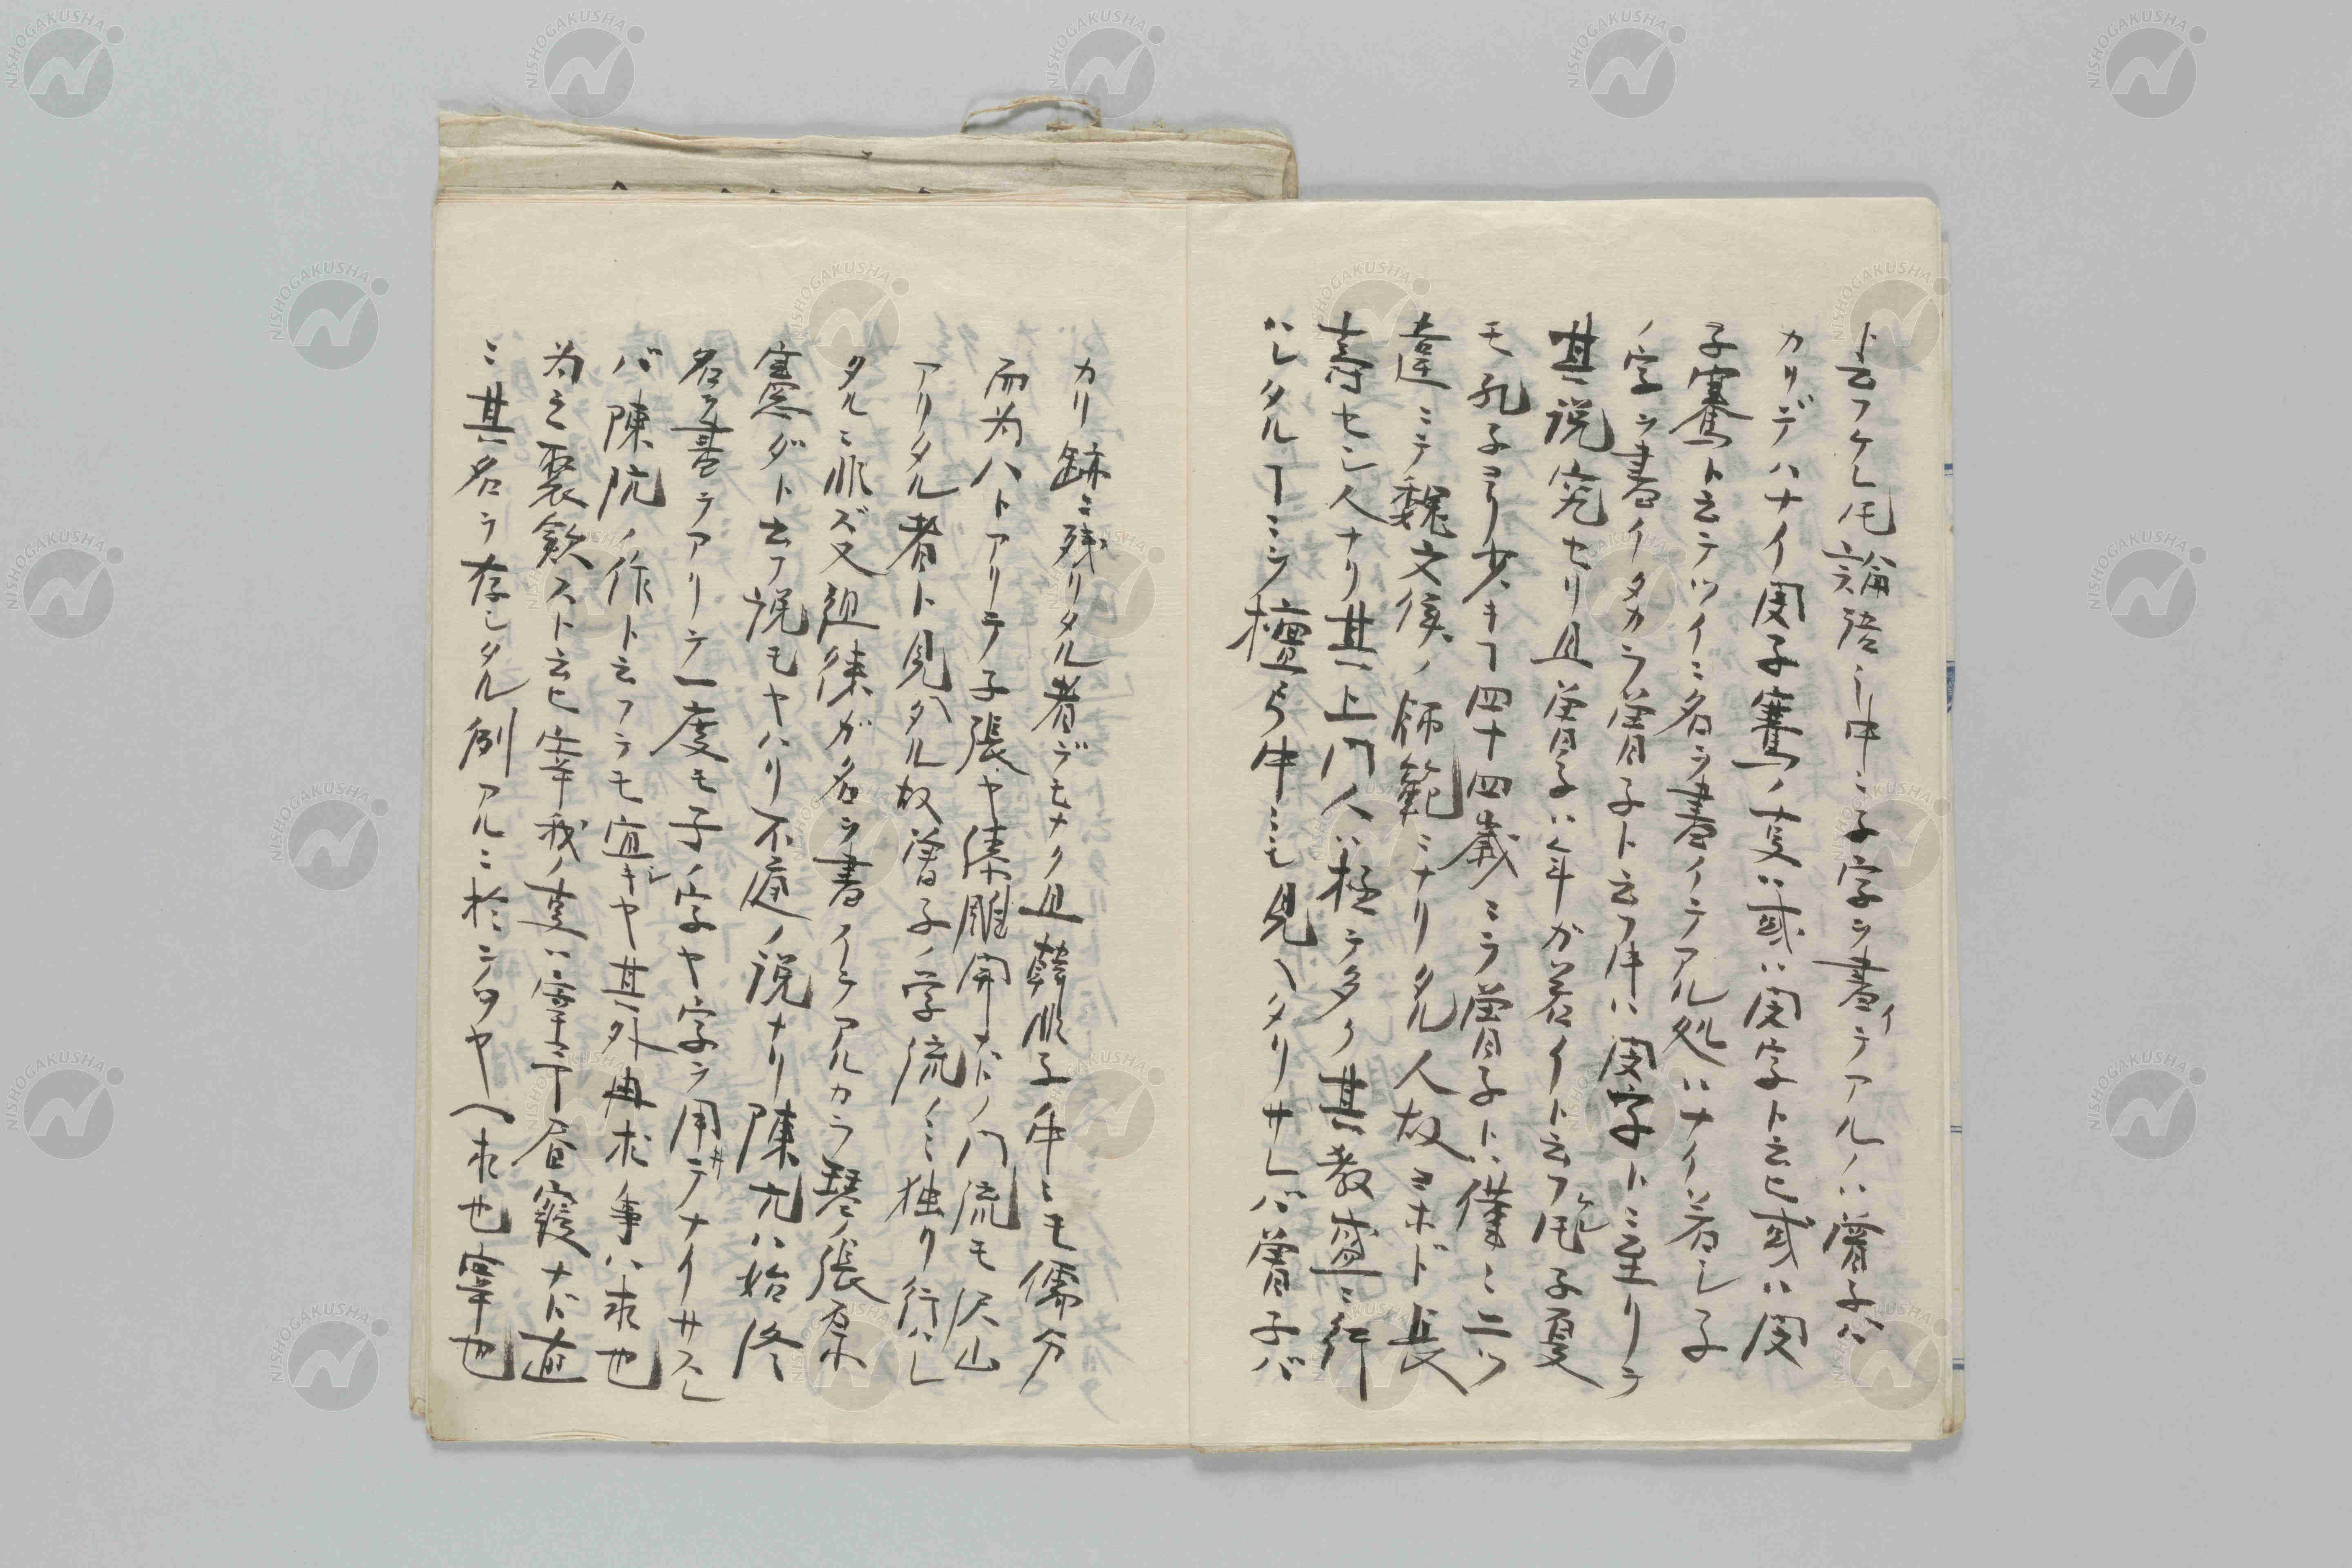 ト云フケレ𪜈論語ノ中ニ子ノ字ヲ書イテアルノハ曽子ハ
カリデハナイ閔子騫ノ叓ハ或ハ閔子ト云ヒ或ハ閔
子騫ト云テツイニ名ヲ書イテアル処ハナイ若シ子
ノ字ヲ書イタカラ曽子ト云フ中ハ閔子トニ至リテ
其説究セリ且曽子ハ年ガ若イト云フケレ𪜈子夏
モ孔子ヨリ少キヿ四十四歳ニシテ曽子トハ僅ニ二ツ
違ニテ魏文侯ノ師範ニナリタル人故ヨホド長
寿セシ人ナリ其上門人ハ極テ多ク其教盛ニ行
ハレタルヿニテ檀弓中ニモ見ヘタリサレバ曽子バ
カリ跡ニ残リタル者デモナク且韓非子中ニモ儒分
而為八トアリテ子張ヤ漆雕開ナドノ門流モ沢山
アリタル者ト見ヘタル故曽子ノ学流ノミ独リ行ハレ
タルニ非ズ又徂徠ガ名ヲ書イテアルカラ琴張原
憲ダト云フ説モヤハリ不通ノ説ナリ陳亢ハ始終
名ヲ書テアリテ一度モ子ノ字ヤ字ヲ用ヰテナイサスレ
バ陳亢ノ作ト云フテモ宜キヤ其外冉求ノ事ハ求也
為之聚斂スト云ヒ宰我ノ叓ハ宰予昼寝ナド直
ニ其名ヲ存シタル例アルニ於テツヤヘ求也宰也
NISHOGAKUSHA